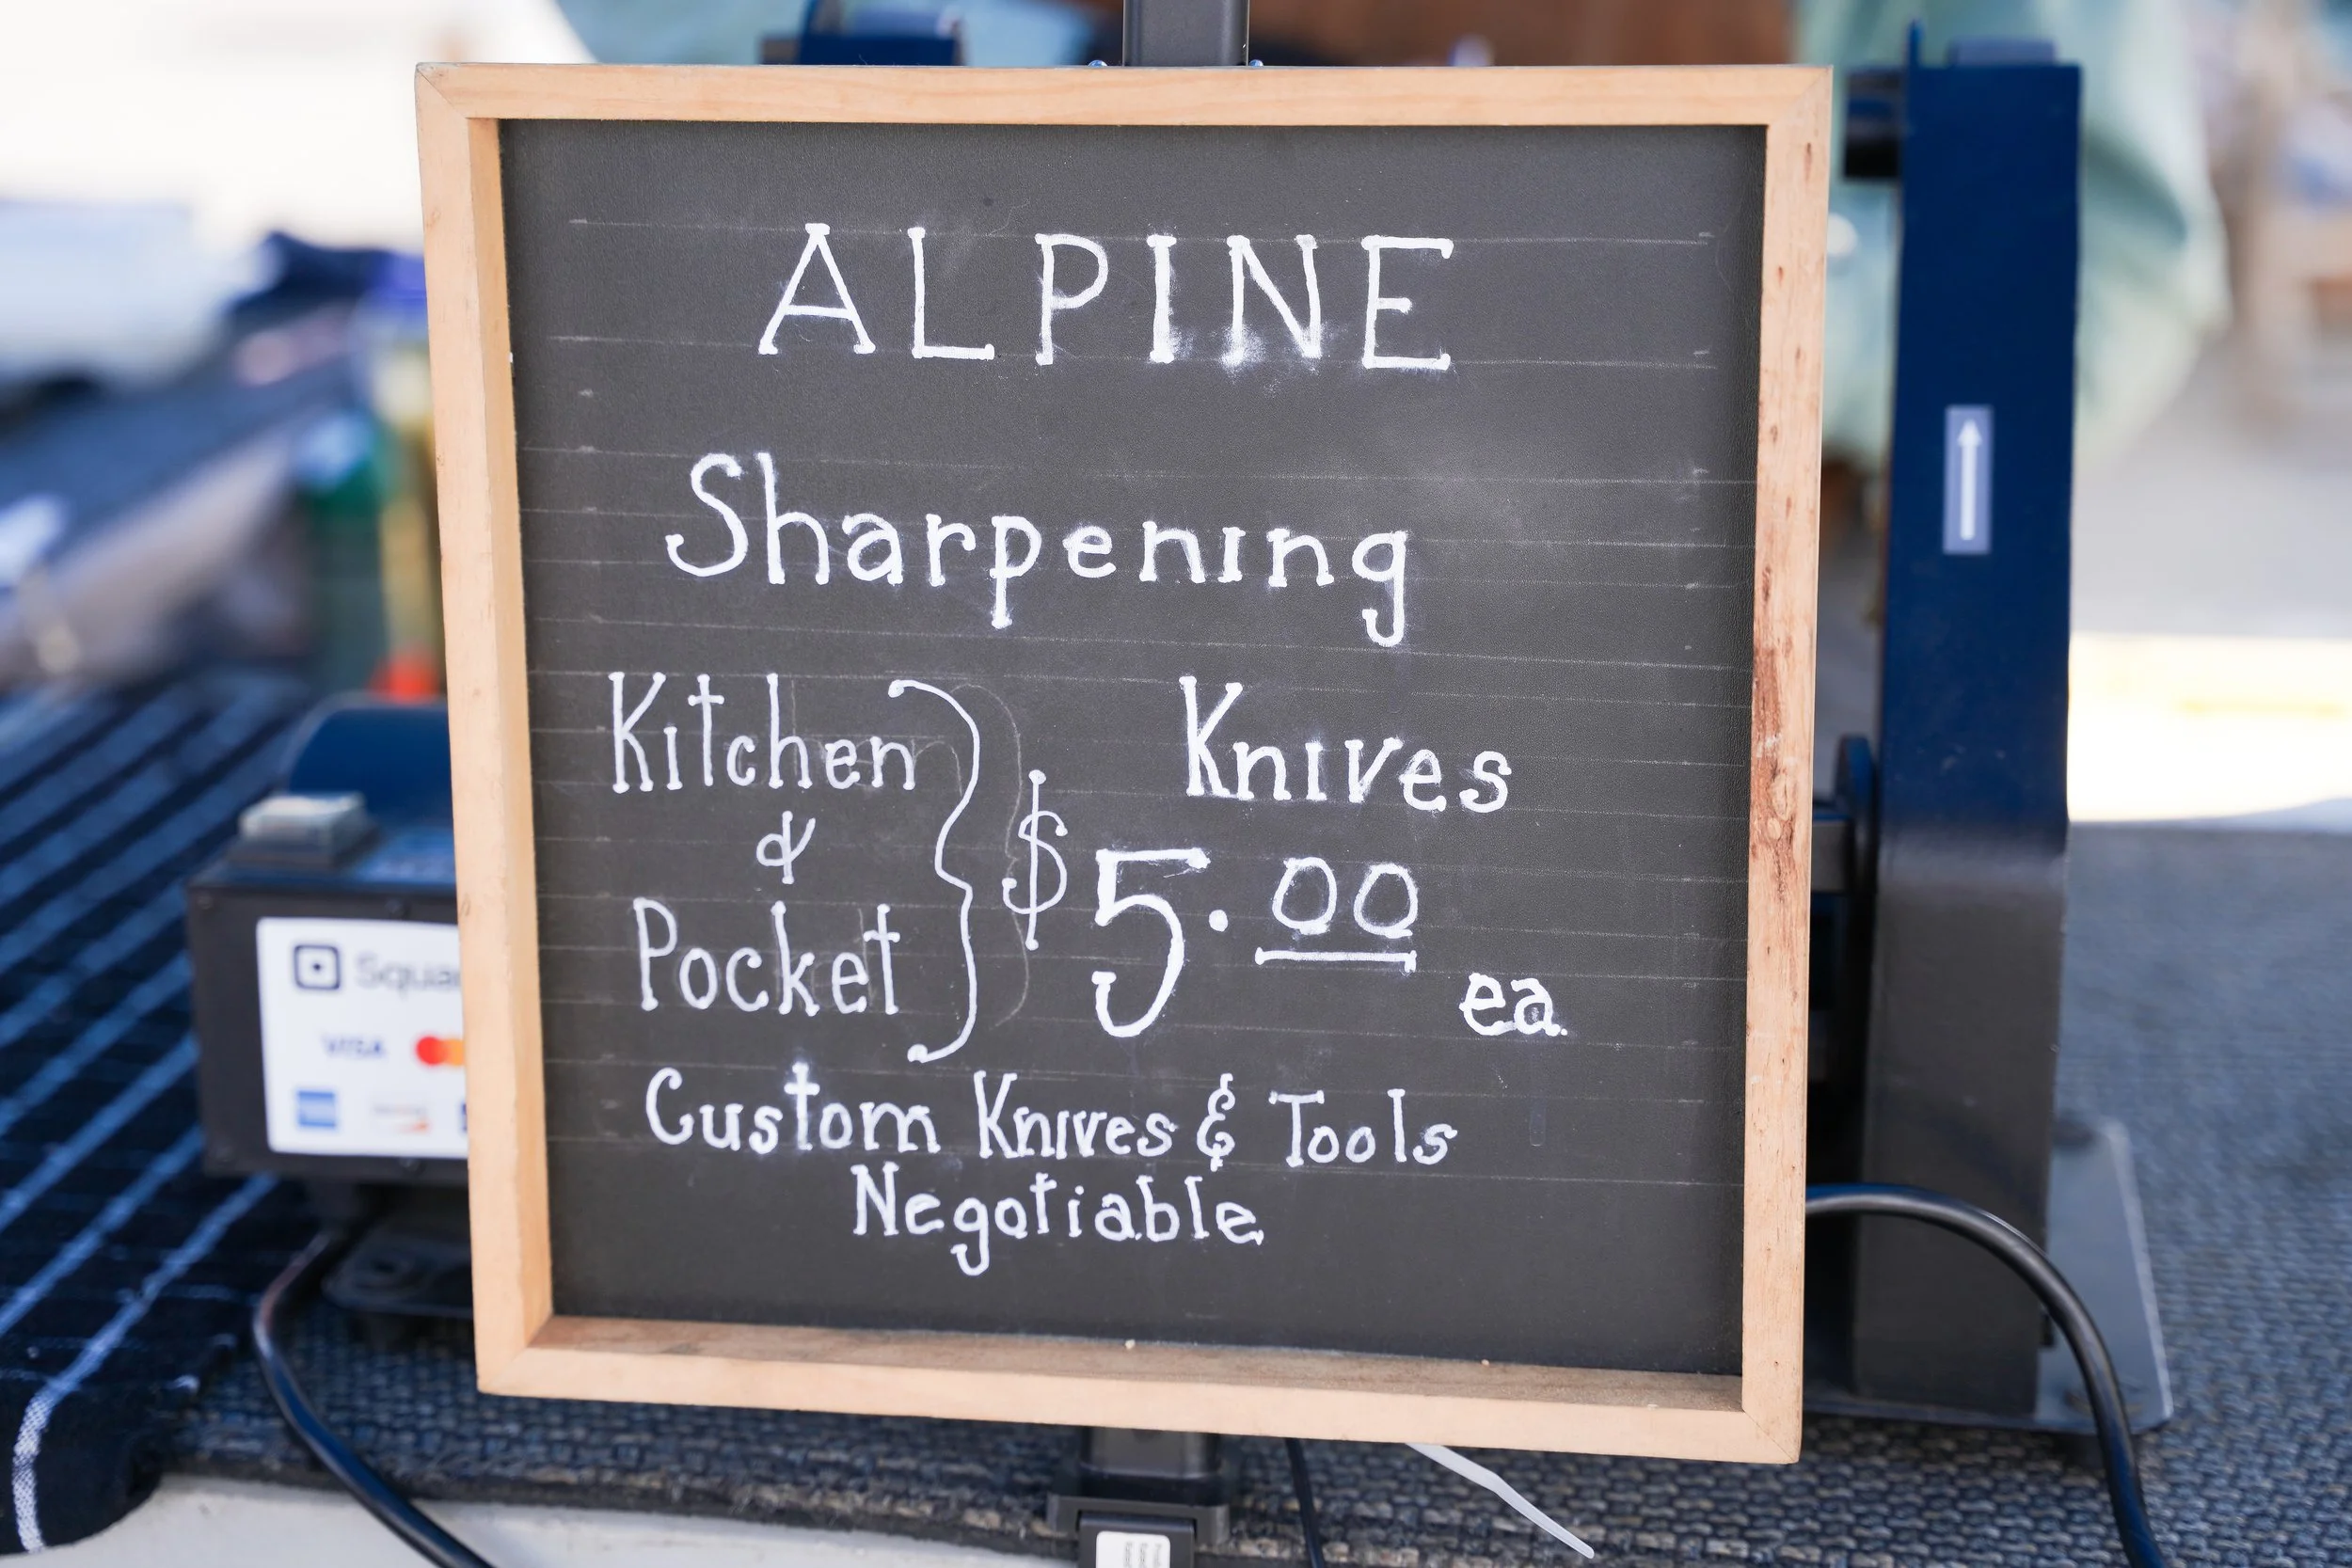 ALPINE
Sharpening
Kitchen
&
Pocket
Knives
$5.00
ea.
Custom Knives & Tools
Negotiable
Squa
VISA